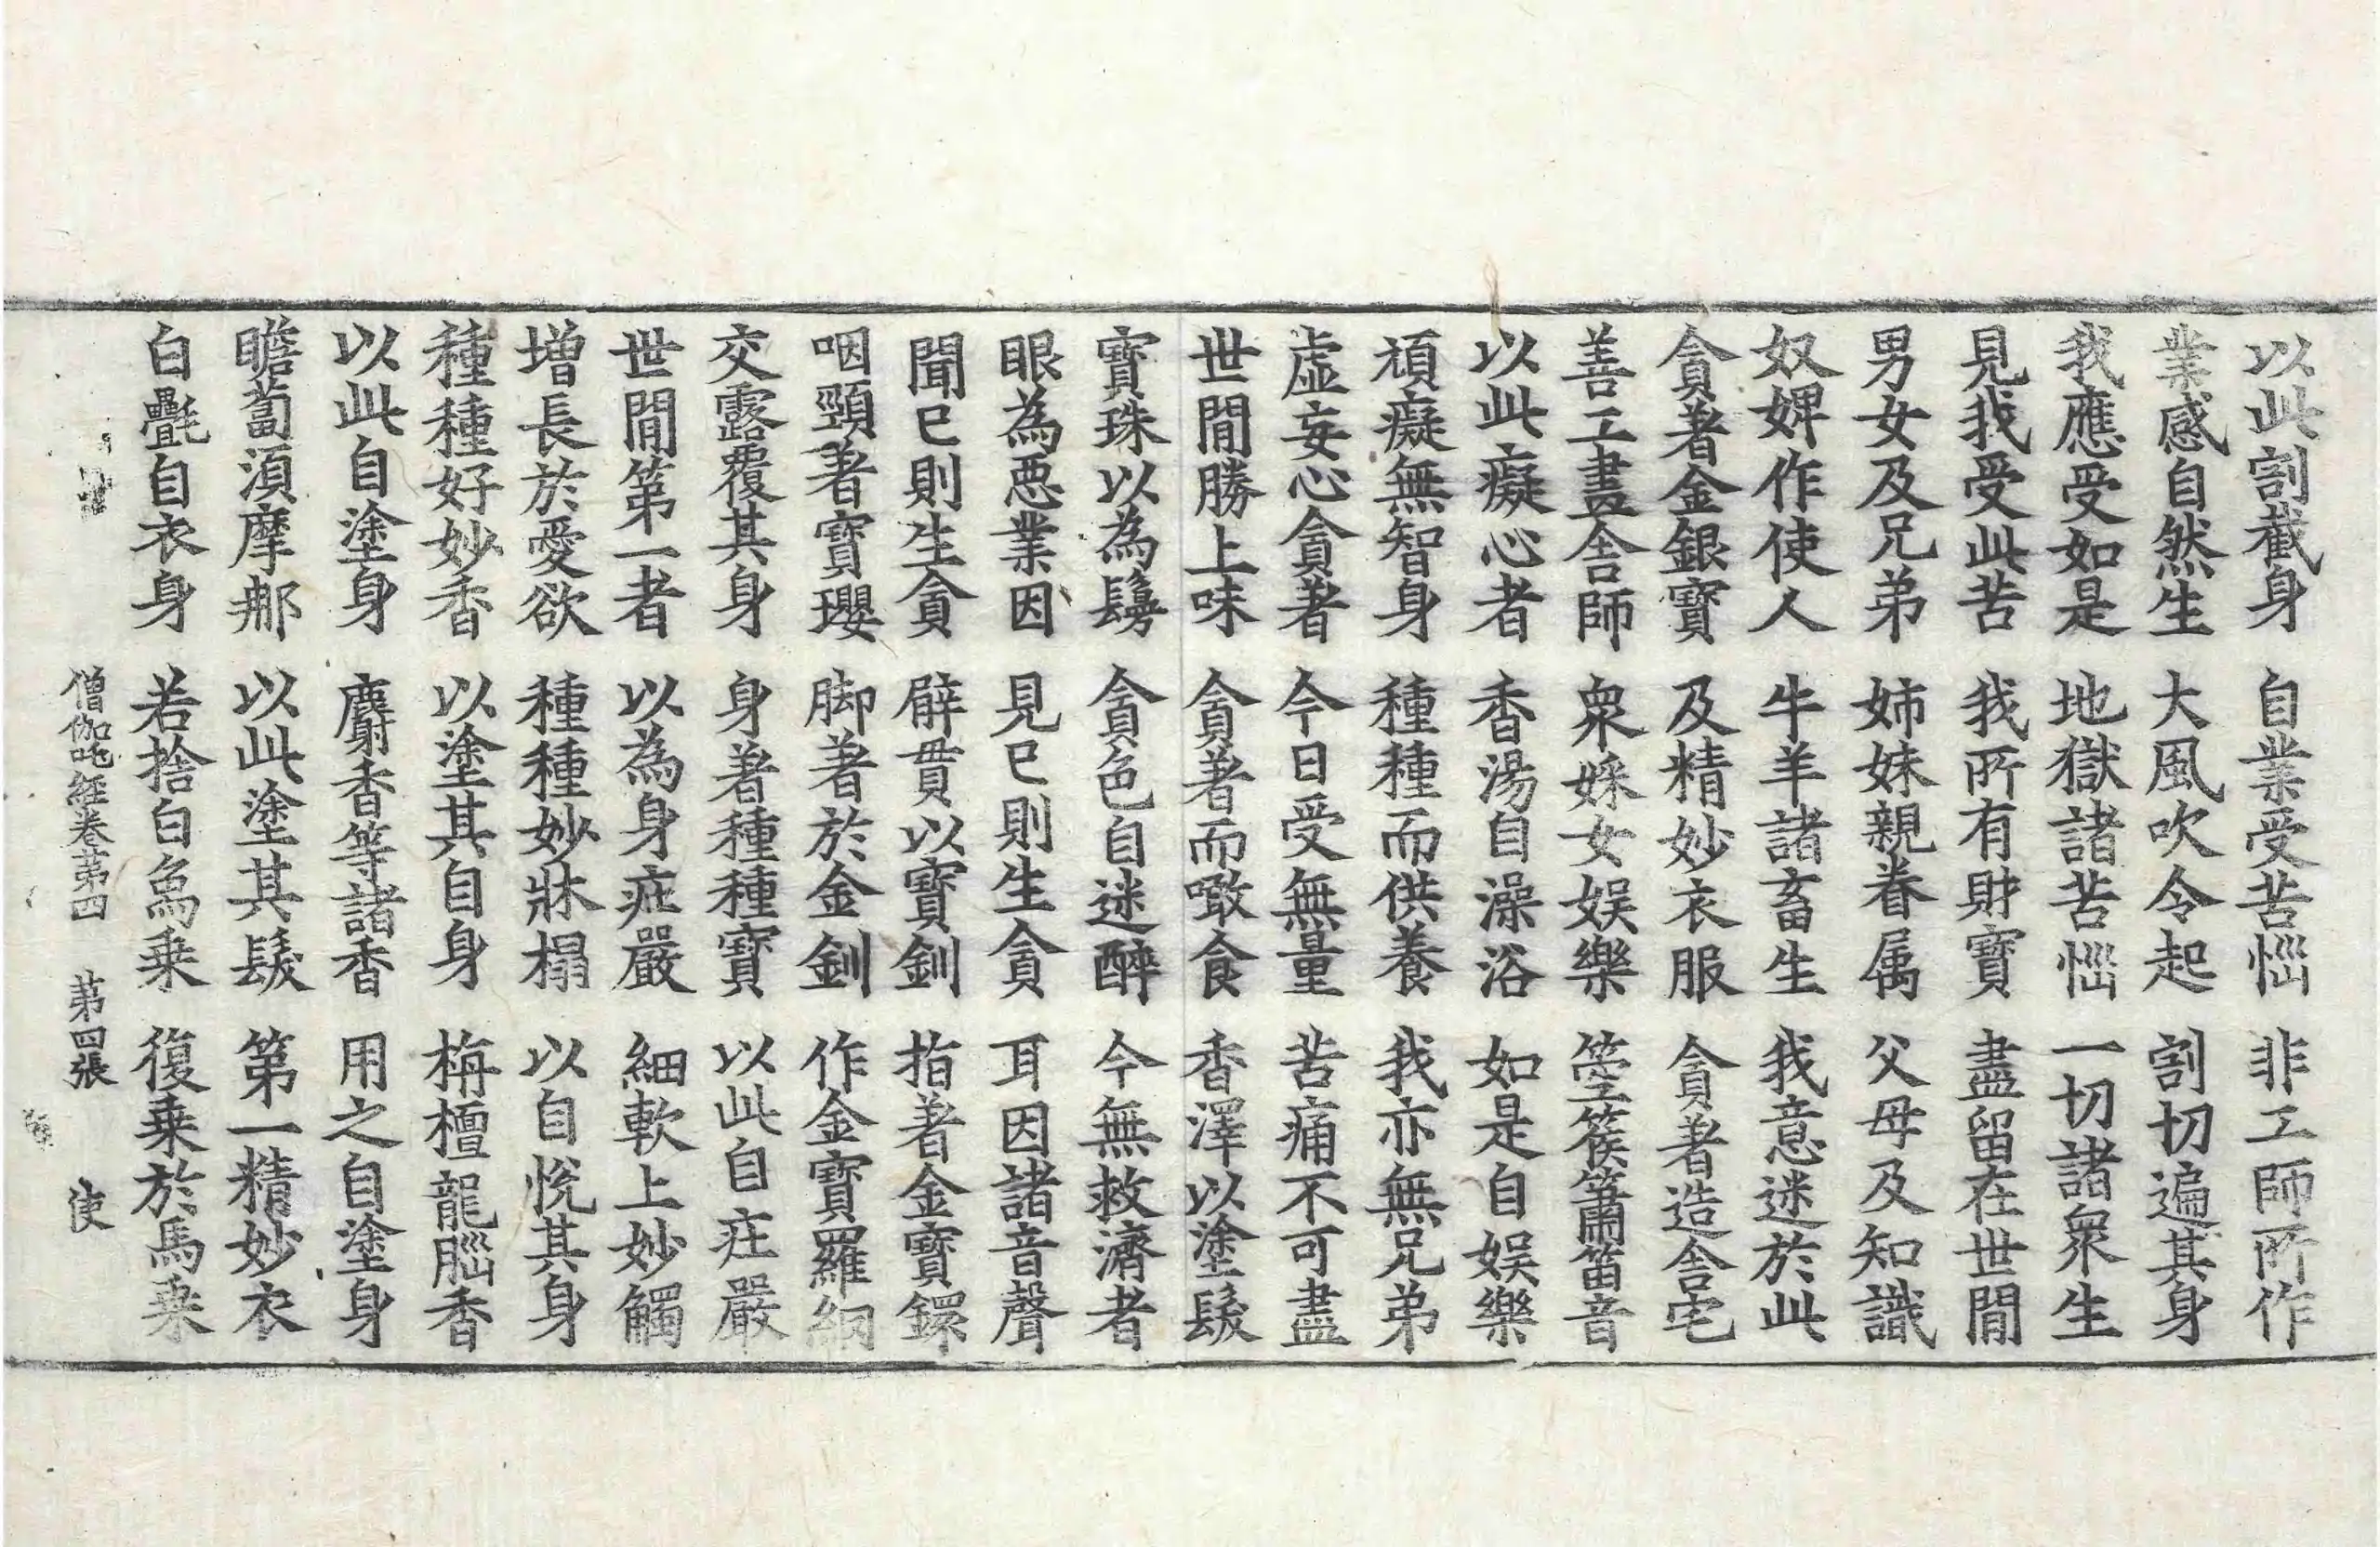 以此割截身 自業受苦惱 非工師所作
業感自然生 大風吹令起 割切遍其身
我應受如是 地獄諸苦惱 一切諸衆生
見我受此苦 我所有財寶 盡留在世間
男女及兄弟 姉妹親眷属 父母及知識
奴婢作使人 牛羊諸畜生 我意迷於此
貪著金銀寶 及精妙衣服 貪著造舎宅
善工畫舎師 衆婇女娱樂 箜篌簫笛音
以此癡心者 香湯自澡浴 如是自娱樂
頑癡無智身 種種而供養 我亦無兄弟
虚妄心貪著 今日受無量 苦痛不可盡
世間勝上味 貪著而噉食 香澤以塗髮
寶珠以為鬘 貪色自迷醉 今無救濟者
眼為惡業因 見已則生貪 耳因諸音聲
聞已則生貪 臂貫以寶釧 指著金寶鐶
咽頸著寶瓔 脚著於金釧 作金寶羅網
交露覆其身 身著種種寶 以此自庄嚴
世間第一者 以為身庄嚴 細軟上妙觸
增長於愛欲 種種妙牀榻 以自悅其身
種種好妙香 以塗其自身 栴檀龍腦香
以此自塗身 麝香等諸香 用之自塗身
瞻蔔須摩那 以此塗其髮 第一精妙衣
白㲲自衣身 若捨白象乗 復乗於馬乗
僧伽吒經卷第四 第四張 使